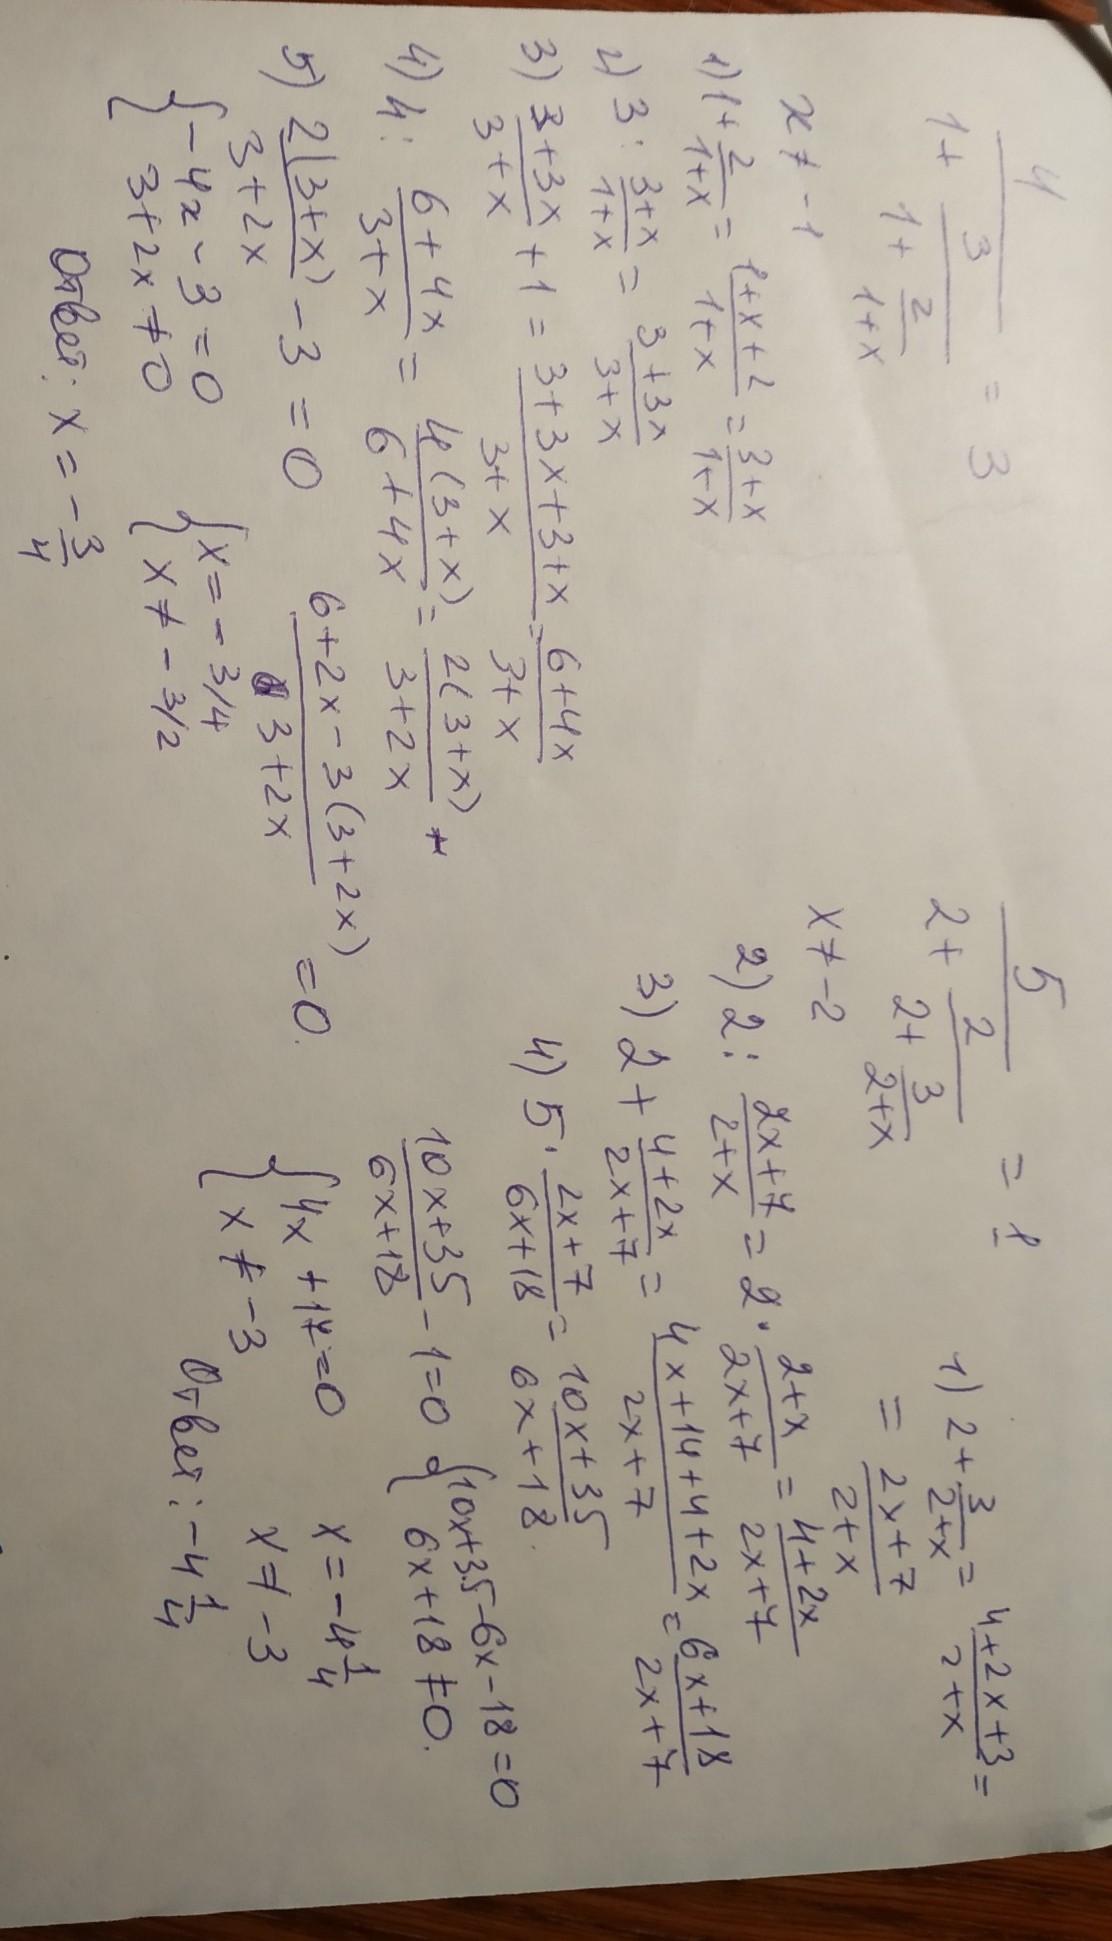 4
1 + 3
1 + 2
1+x
= 3
x ≠ -1
1) 1 + 2/(1+x) = (1+x+2)/(1+x) = (3+x)/(1+x)
2) 3 : (3+x)/(1+x) = (3+3x)/(3+x)
3) (3+3x)/(3+x) + 1 = (3+3x+3+x)/(3+x) = (6+4x)/(3+x)
4) 4 : (6+4x)/(3+x) = 4(3+x)/(6+4x) = 2(3+x)/(3+2x)
5) 2(3+x)/(3+2x) - 3 = 0 (6+2x-3(3+2x))/(3+2x) = 0.
{ -4x - 3 = 0
3+2x ≠ 0
{ x = - 3/4
x ≠ - 3/2
Ответ: x = - 3/4
5
2 + 2
2 + 3
2+x
= 1
x ≠ -2
1) 2 + 3/(2+x) = (4+2x+3)/(2+x) =
= (2x+7)/(2+x)
2) 2 : (2x+7)/(2+x) = 2 · (2+x)/(2x+7) = (4+2x)/(2x+7)
3) 2 + (4+2x)/(2x+7) = (4x+14+4+2x)/(2x+7) = (6x+18)/(2x+7)
4) 5 · (2x+7)/(6x+18) = (10x+35)/(6x+18).
(10x+35)/(6x+18) - 1 = 0 { 10x+35-6x-18=0
6x+18≠0.
{ 4x + 17 = 0
x ≠ -3
x = -4 1/4
x ≠ -3
Ответ: -4 1/4